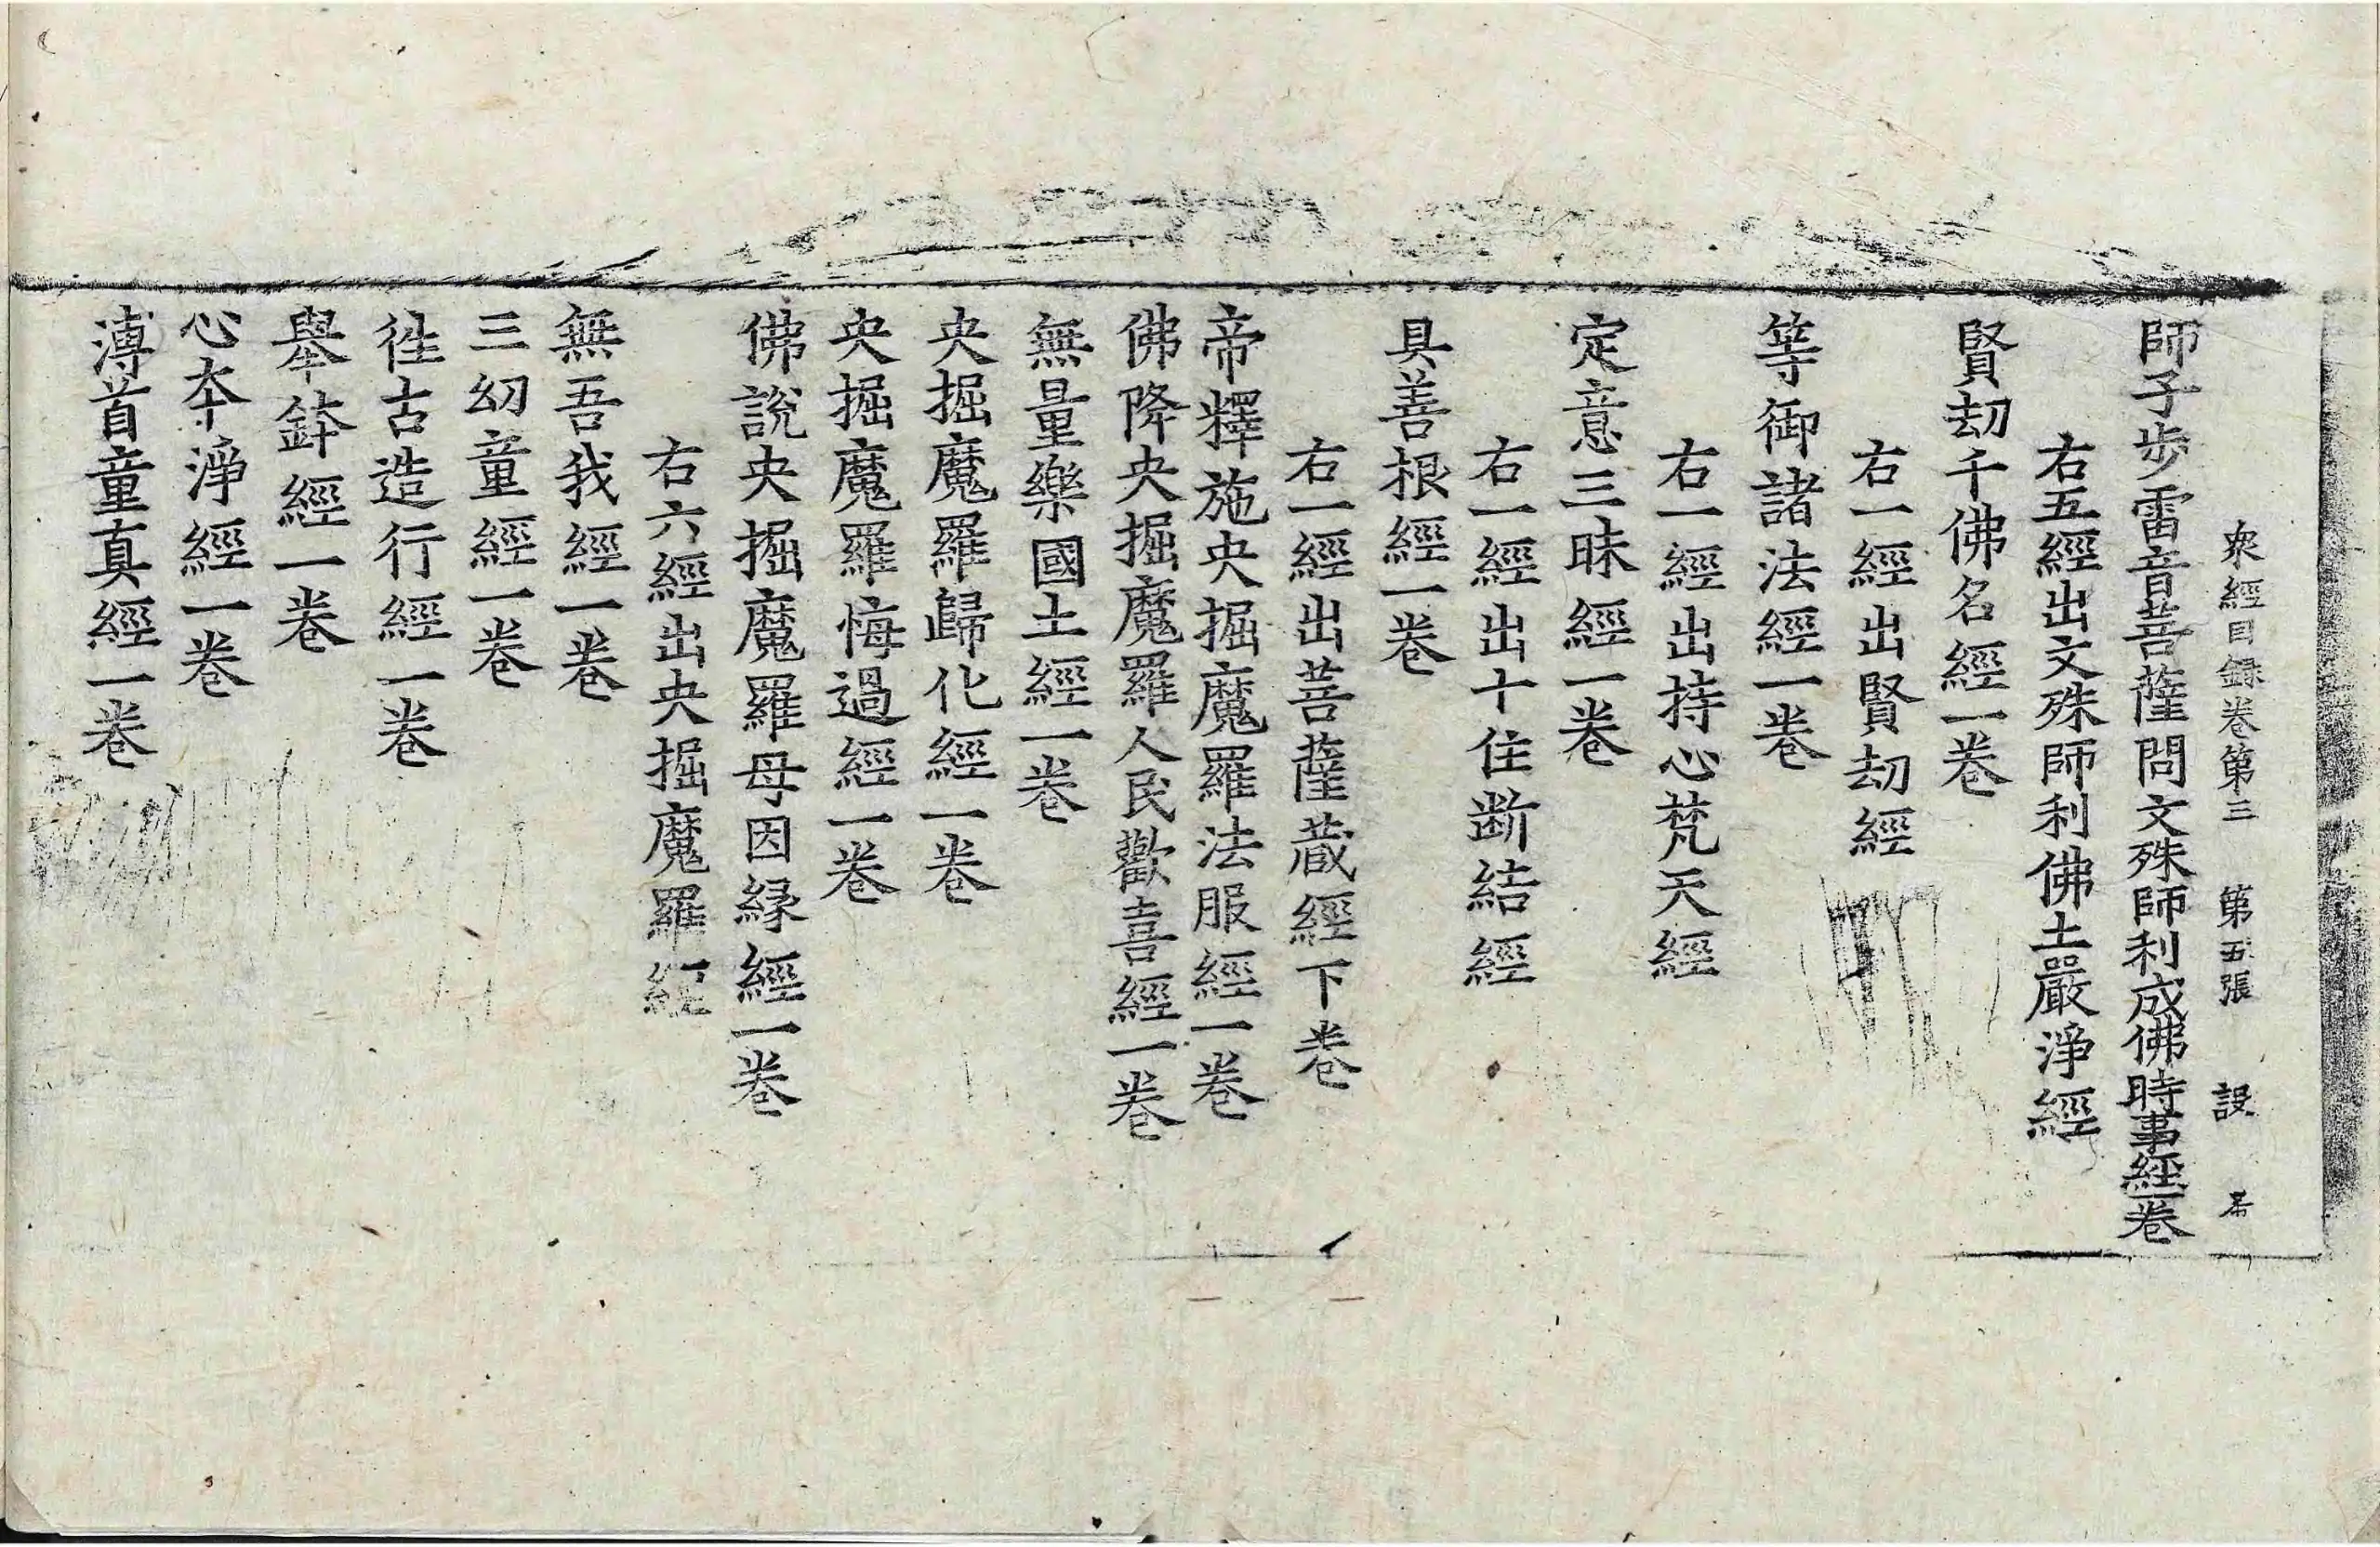 衆經目録卷第三 第五張 設
師子歩雷音菩薩問文殊師利成佛時事經一卷
右五經出文殊師利佛土嚴淨經
賢刧千佛名經一卷
右一經出賢刧經
等御諸法經一卷
右一經出持心梵天經
定意三昧經一卷
右一經出十住断結經
具善根經一卷
右一經出菩薩蔵經下卷
帝釋施央掘魔羅法服經一卷
佛降央掘魔羅人民歡喜經一卷
無量樂國土經一卷
央掘魔羅歸化經一卷
央掘魔羅悔過經一卷
佛說央掘魔羅母因縁經一卷
右六經出央掘魔羅經
無吾我經一卷
三幼童經一卷
徃古造行經一卷
舉鉢經一卷
心夲淨經一卷
溥首童真經一卷